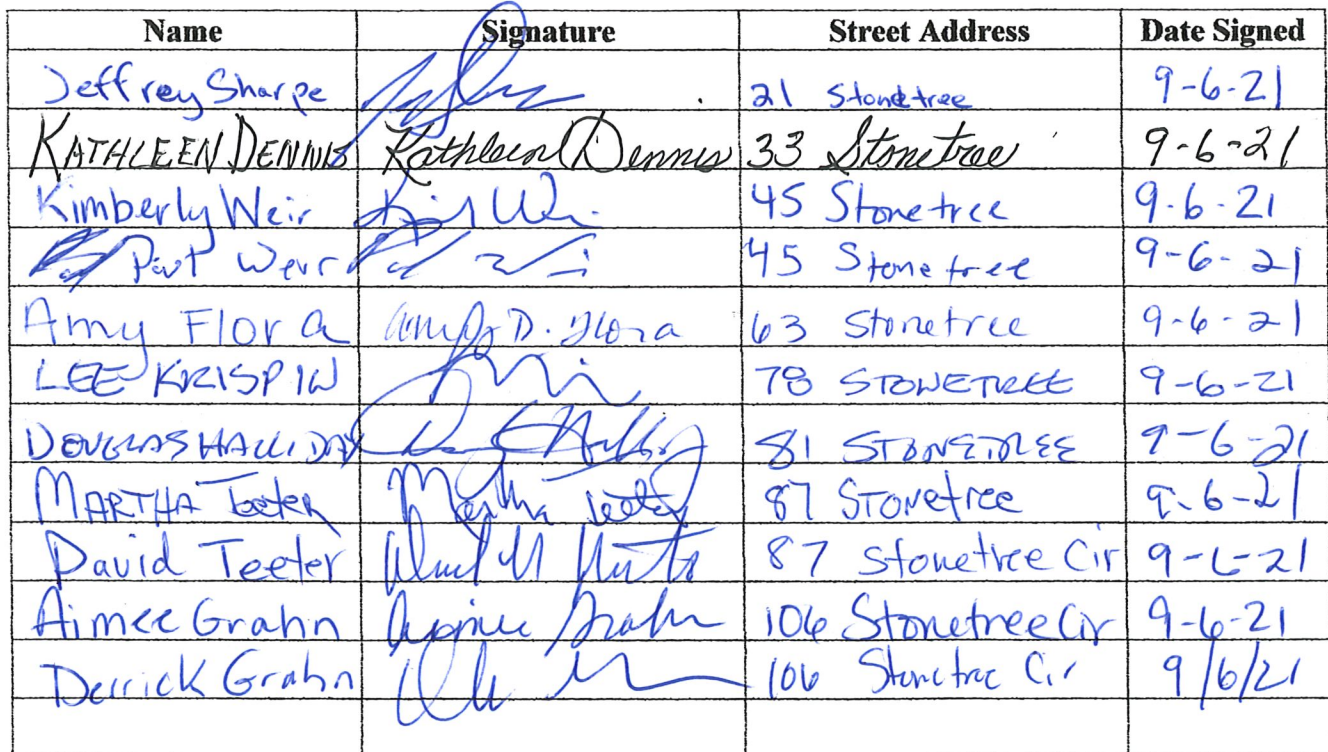 Name Signature Street Address Date Signed
Jeffrey Sharpe 21 Stonetree 9-6-21
KATHLEEN DENNIS Kathleen Dennis 33 Stonetree 9-6-21
Kimberly Weir 45 Stonetree 9-6-21
Weir 45 Stonetree 9-6-21
Amy Flora Amy D. Flora 63 Stonetree 9-6-21
LEE KRISPIN 78 STONETREE 9-6-21
DOUGLAS HALLIDAY 81 STONETREE 9-6-21
MARTHA Teeter Martha Teeter 87 STonetree 9-6-21
David Teeter 87 Stonetree Cir 9-6-21
Aimee Grahn Aimee Grahn 106 Stonetree Cir 9-6-21
Derrick Grahn 106 Stonetree Cir 9/6/21